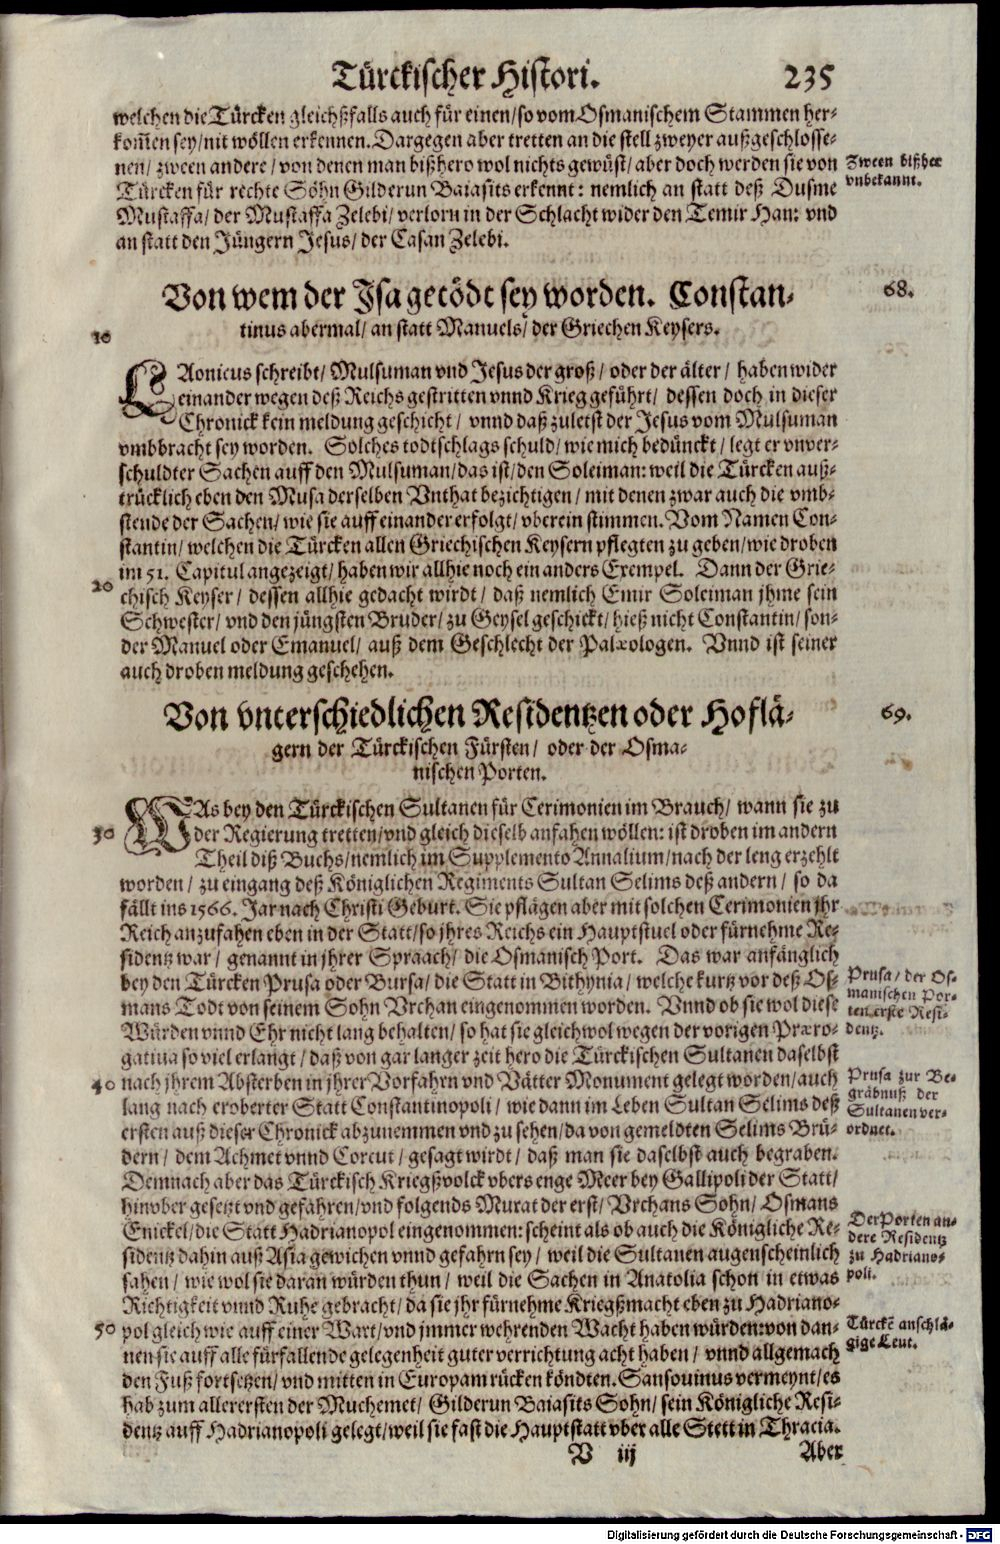 Türckischer Histori. 235
welchen die Türcken gleichßfalls auch für einen/ so vom Osmanischem Stammen her-
kom̃en sey/ nit wöllen erkennen. Dargegen aber tretten an die stell zweyer außgeschlosse-
nen/ zween andere/ von denen man bißhero wol nichts gewüst/ aber doch werden sie von
Türcken für rechte Söhn Gilderun Baiasits erkennt: nemlich an statt deß Dusme
Mustaffa/ der Mustaffa Zelebi/ verlorn in der Schlacht wider den Temir Han: vnd
an statt den Jüngern Jesus/ der Casan Zelebi.
Zween bißher
vnbekannt.
Von wem der Isa getödt sey worden. Constan-
tinus abermal/ an statt Manuels/ der Griechen Keysers.
68.
10
LAonicus schreibt/ Mulsuman vnd Jesus der groß/ oder der älter/ haben wider
einander wegen deß Reichs gestritten vnnd Krieg geführt/ dessen doch in dieser
Chronick kein meldung geschicht/ vnnd daß zuletst der Jesus vom Mulsuman
vmbbracht sey worden. Solches todtschlags schuld/ wie mich bedünckt/ legt er vnver-
schuldter Sachen auff den Mulsuman/ das ist/ den Soleiman: weil die Türcken auß-
trücklich eben den Musa derselben Vnthat bezichtigen/ mit denen zwar auch die vmb-
stende der Sachen/ wie sie auff einander erfolgt/ vberein stimmen. Vom Namen Con-
stantin/ welchen die Türcken allen Griechischen Keysern pflegten zu geben/ wie droben
im 51. Capitul angezeigt/ haben wir allhie noch ein anders Exempel. Dann der Grie-
20
chisch Keyser/ dessen allhie gedacht wirdt/ daß nemlich Emir Soleiman jhme sein
Schwester/ vnd den jüngsten Bruder/ zu Geysel geschickt/ hieß nicht Constantin/ son-
der Manuel oder Emanuel/ auß dem Geschlecht der Palæologen. Vnnd ist seiner
auch droben meldung geschehen.
Von vnterschiedlichen Residentzen oder Hoflä-
gern der Türckischen Fürsten/ oder der Osma-
nischen Porten.
69.
WAs bey den Türckischen Sultanen für Cerimonien im Brauch/ wann sie zu
30
der Regierung tretten/ vnd gleich dieselb anfahen wöllen: ist droben im andern
Theil diß Buchs/ nemlich im Supplemento Annalium/ nach der leng erzehlt
worden/ zu eingang deß Königlichen Regiments Sultan Selims deß andern/ so da
fällt ins 1566. Jar nach Christi Geburt. Sie pflägen aber mit solchen Cerimonien jhr
Reich anzufahen eben in der Statt/ so jhres Reichs ein Hauptstuel oder fürnehme Re-
sidentz war/ genannt in jhrer Spraach/ die Osmanisch Port. Das war anfänglich
bey den Türcken Prusa oder Bursa/ die Statt in Bithynia/ welche kurtz vor deß Os-
mans Todt von seinem Sohn Vrchan eingenommen worden. Vnnd ob sie wol diese
Würden vnnd Ehr nicht lang behalten/ so hat sie gleichwol wegen der vorigen Præro-
gatiua so viel erlangt/ daß von gar langer zeit hero die Türckischen Sultanen daselbst
40
nach jhrem Absterben in jhrer Vorfahrn vnd Vätter Monument gelegt worden/ auch
lang nach eroberter Statt Constantinopoli/ wie dann im Leben Sultan Selims deß
ersten auß dieser Chronick abzunemmen vnd zu sehen/ da von gemeldten Selims Brü-
dern/ dem Achmet vnnd Corcut/ gesagt wirdt/ daß man sie daselbst auch begraben.
Demnach aber das Türckisch Kriegßvolck vbers enge Meer bey Gallipoli der Statt/
hinvber gesetzt vnd gefahren/ vnd folgends Murat der erst/ Vrchans Sohn/ Osmans
Enickel/ die Statt Hadrianopol eingenommen: scheint als ob auch die Königliche Re-
sidentz dahin auß Asia gewichen vnnd gefahrn sey/ weil die Sultanen augenscheinlich
sahen/ wie wol sie daran würden thun/ weil die Sachen in Anatolia schon in etwas
Richtigkeit vnnd Ruhe gebracht/ da sie jhr fürnehme Kriegßmacht eben zu Hadriano-
50
pol gleich wie auff einer Wart/ vnd jmmer wehrenden Wacht haben würden: von dan-
nen sie auff alle fürfallende gelegenheit guter verrichtung acht haben/ vnnd allgemach
den Fuß fortsetzen/ vnd mitten in Europam rücken köndten. Sansouinus vermeynt/ es
hab zum allerersten der Muchemet/ Gilderun Baiasits Sohn/ sein Königliche Resi-
dentz auff Hadrianopoli gelegt/ weil sie fast die Hauptstatt vber alle Stett in Thracia.
Prusa/ der Os-
manischen Por-
ten erste Resi-
dentz.
Prusa zur Be-
gräbnuß der
Sultanen ver-
ordnet.
Der Porten an-
dere Residentz
zu Hadriano-
poli.
Türckẽ anschlä-
gige Leut.
V iij
Aber
Digitalisierung gefördert durch die Deutsche Forschungsgemeinschaft - DFG